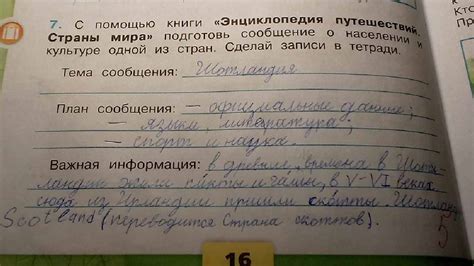 7. С помощью книги «Энциклопедия путешествий.
Страны мира» подготовь сообщение о населении и
культуре одной из стран. Сделай записи в тетради.
Тема сообщения: Шотландия
План сообщения: – официальные данные;
– языки, литература;
– спорт и наука.
Важная информация: в древние времена в Шот-
ландии жили пикты и гэлы, в V-VI веках
сюда из Ирландии пришли скотты. Шотлан
Scotland (переводится Страна скоттов).
5
16